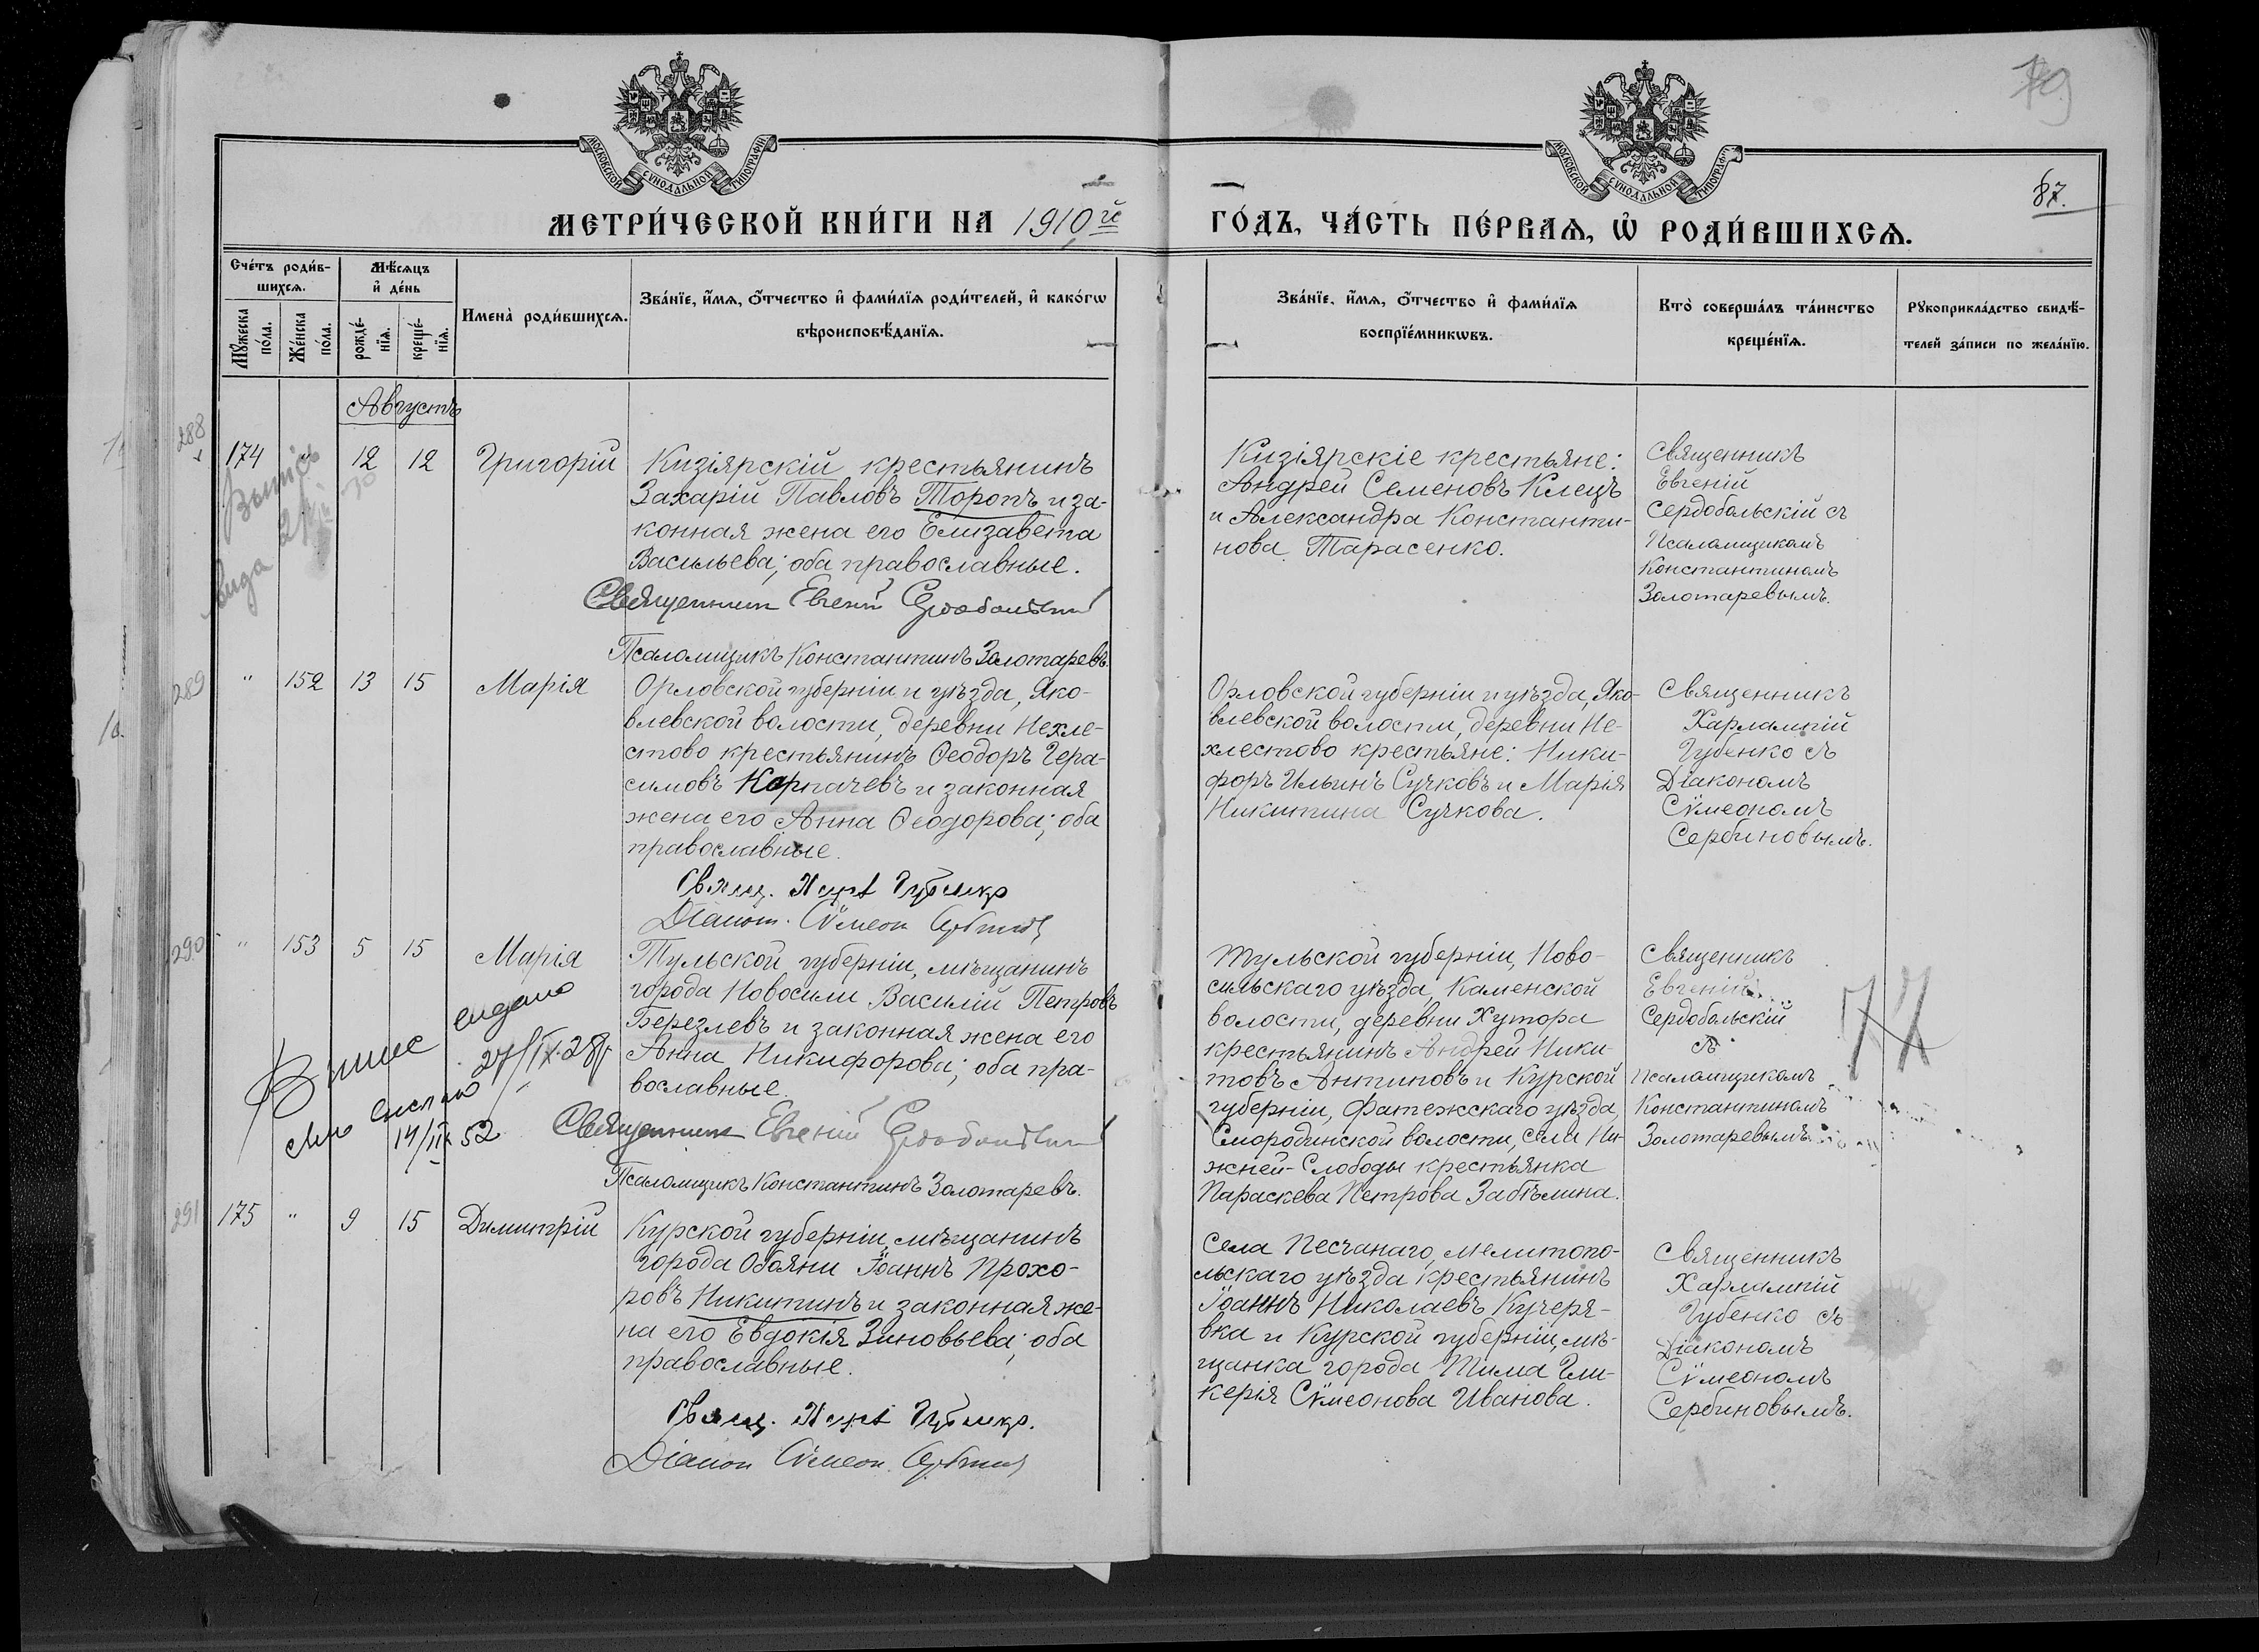 79
87.
МОСКОВСКОЙ СѴНОДАЛЬНОЙ ТИПОГРАФІИ
МОСКОВСКОЙ СѴНОДАЛЬНОЙ ТИПОГРАФІИ
МЕТРИ́ЧЕСКОЙ КНИ́ГИ НА 1910й
ГО́ДЪ, ЧА́СТЬ ПЕ́РВАѦ, Ѡ҆ РОДИ́ВШИХСѦ.
Сче́тъ роди́в-
шихсѧ.
Мꙋ́жеска по́ла.
Же́нска по́ла.
Мѣ́сѧцъ
и҆ де́нь
рожде́-
нїѧ.
креще́-
нїѧ.
Имена̀ роди́вшихсѧ.
Зва́нїе, и҆́мѧ, ѻ҆́тчество и҆ фами́лїѧ роди́телей, и҆ како́гѡ
вѣроисповѣ́данїѧ.
Зва́нїе, и҆́мѧ, ѻ҆́тчество и҆ фами́лїѧ
воспрїе́мникѡвъ.
Кто̀ соверша́лъ та́инство
креще́нїѧ.
Рꙋкоприкла́дство свидѣ́-
телей за́писи по жела́нїю.
Августъ
288
174 " 12 12 Григорій
Кизіярскій крестьянинъ
Захарій Павловъ Торопъ и за-
конная жена его Елизавета
Васильева; оба православные.
Священник Евгений Сердобольский
Псаломщикъ Константинъ Золотаревъ.
Кизіярскіе крестьяне:
Андрей Семеновъ Клецъ
и Александра Константи-
нова Тарасенко.
Священникъ
Евгеній
Сердобольскій съ
Псаломщикомъ
Константиномъ
Золотаревымъ.
289
" 152 13 15 Марія
Орловской губерніи и уѣзда, Яко-
влевской волости, деревни Нехле-
стово крестьянинъ Ѳеодоръ Гера-
симовъ Карпачевъ и законная
жена его Анна Ѳеодорова; оба
православные.
Свящ. Губенко
Діакон Сѵмеон Сербинов
Орловской губерніи и уѣзда, Яко-
влевской волости, деревни Не-
хлестово крестьяне: Ники-
форъ Ильинъ Сучковъ и Марія
Никитина Сучкова.
Священникъ
Харлампій
Губенко съ
Діакономъ
Сѵмеономъ
Сербиновымъ.
290
" 153 5 15 Марія
Тульской губерніи, мѣщанинъ
города Новосили Василій Петровъ
Березлевъ и законная жена его
Анна Никифорова; оба пра-
вославные.
Священник Евгеній Сердобольский
Псаломщикъ Константинъ Золотаревъ.
видано
27/IX-28
14/II 52
Тульской губерніи, Ново-
сильскаго уѣзда, Каменской
волости, деревни Хутора
крестьянинъ Андрей Ники-
товъ Антиповъ и Курской
губерніи, Фатежскаго уѣзда,
Смородинской волости, села Ни-
жней-Слободы крестьянка
Параскева Петрова Забѣлина.
Священникъ
Евгеній
Сердобольскій
съ
Псаломщикомъ
Константиномъ
Золотаревымъ.
291
175 " 9 15 Димитрій
Курской губерніи, мѣщанинъ
города Обояни Іоаннъ Прохо-
ровъ Никитинъ и законная же-
на его Евдокія Зиновьева; оба
православные.
Свящ. Губенко.
Діакон Сѵмеон Сербинов
Села Песчанаго, Мелитопо-
льскаго уѣзда крестьянинъ
Іоаннъ Николаевъ Кучеря-
вка и Курской губерніи, мѣ-
щанка города Тима Гли-
керія Сѵмеонова Иванова.
Священникъ
Харлампій
Губенко съ
Діакономъ
Сѵмеономъ
Сербиновымъ.